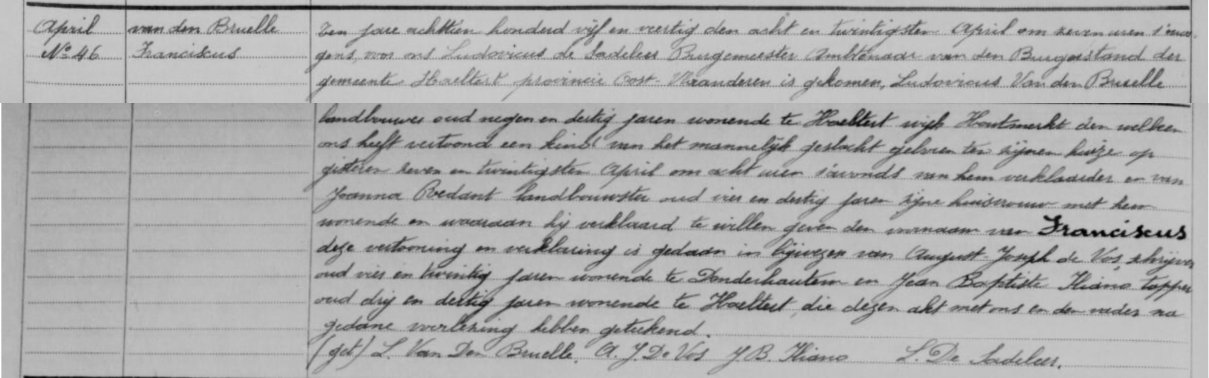 April
No 46
van den Bruelle
Franciskus
Ten jare achttien honderd vijf en veertig den acht en twintigsten April om zeven uren s'mor-
gens, voor ons Ludovicus de Sadeleer Burgemeester Ambtenaar van den Burgerstand der
gemeente Haeltert provincie Oost-Vlaanderen is gekomen, Ludovicus Van den Bruelle
landbouwer oud negen en dertig jaren wonende te Haeltert wijk Houtmerkt den welken
ons heeft vertoond een kind van het mannelijk geslacht geboren ten zijnen huize op
gisteren zeven en twintigsten April om acht uren s'avonds van hem verklaarder en van
Joanna Redant landbouwster oud vier en dertig jaren zijne huisvrouw met hem
wonende en waaraan hij verklaard te willen geven den voornaam van Franciskus
deze vertooning en verklaring is gedaan in bijwezen van August-Joseph de Vos, schrijver
oud vier en twintig jaren wonende te Denderhautem en Jean Baptiste Kiano tapper
oud drij en dertig jaren wonende te Haeltert, die dezen akt met ons en den vader na
gedane voorlezing hebben getekend.
(get) L. Van Den Bruelle. A. J. De Vos J. B. Kiano L. De Sadeleer.